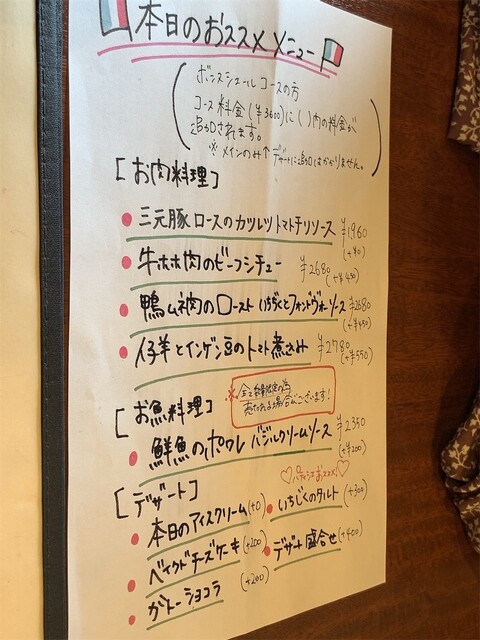 本日のおススメメニュー
ボンヌシュール コースの方
コース料金(¥3600)に( )内の料金が
追加されます。
※メインのみ↑デザートに追加はかかりません。
[お肉料理]
三元豚ロースのカツレツ トマトチリソース ¥1960
(+¥0)
牛ホホ肉のビーフシチュー ¥2680
(+¥450)
鴨ムネ肉のロースト いちぢくとフォンドヴォーソース ¥2680
(+¥450)
仔羊とインゲン豆のトマト煮込み ¥2780
(+¥550)
※全て数量限定の為
売り切れる場合がございます!
[お魚料理]
鮮魚のポワレ バジルクリームソース ¥2350
(+¥200)
[デザート]
♡パティシエおススメ!♡
本日のアイスクリーム(+0)
いちじくのタルト (+300)
ベイクドチーズケーキ (+200)
デザート盛合せ(+400)
ガトーショコラ (+200)